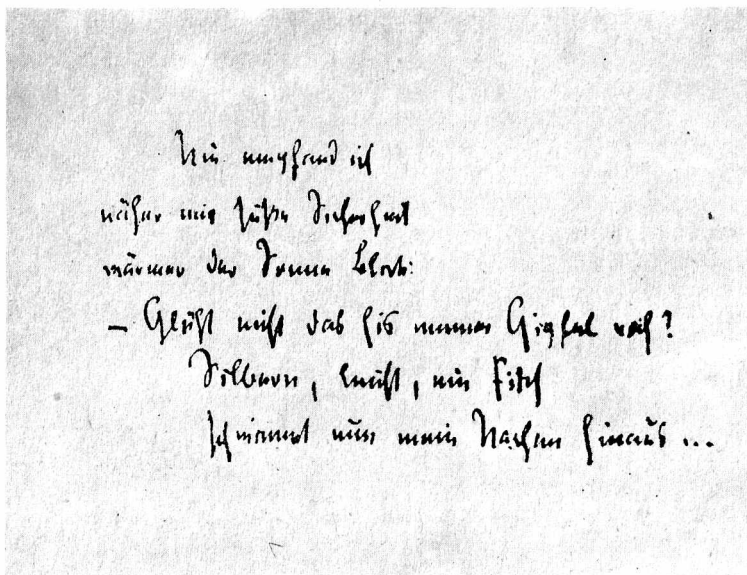 Nie empfand ich
näher mir süße Sicherheit
wärmer der Sonne Blick:
– Glüht nicht das Eis meiner Gipfel noch?
Silbern, leicht, ein Fisch
schwimmt nun mein Nachen hinaus ...